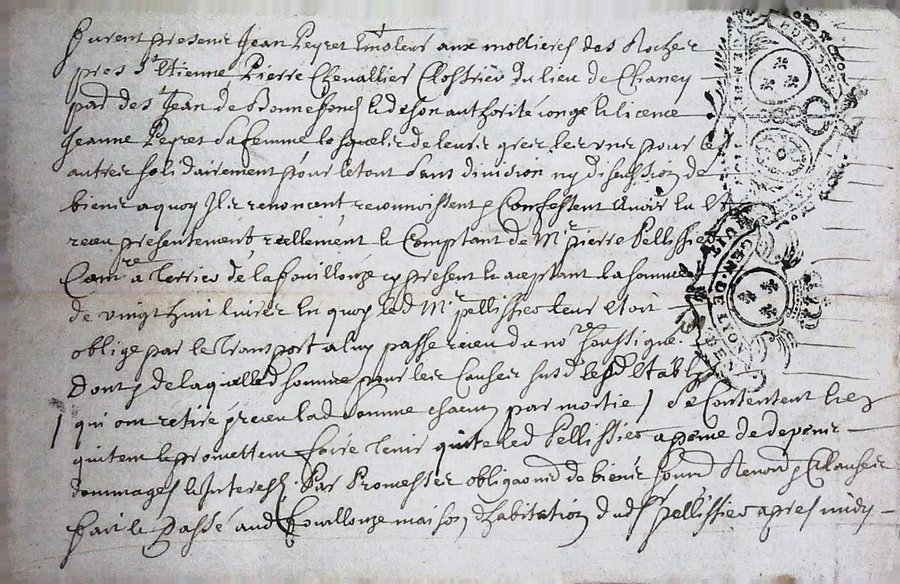 furent presents Jean Peyret aux mollieres des Rochers
pres St Etienne Pierre Chevallier Clostrier du lieu de Chaney
par des Jean de Bonnefond & de son authorité conge & licence
Jeanne Peyret sa femme lesquels de leurs grez les uns pour les
autres solidairement pour le tout sans division ny discussion de
biens a quoy Ils renoncent reconnoissent & Confessent avoir Eu et
receu presentement reellement & Comptant de Mr pierre Pellissier
a Terrier de la fouillouze cy present & aceptant la somme
de vingt huit livres En quoy led Mr pellissier leur Etoit
oblige par le Transport a luy passe receu du nore
Dont & de laquelle d somme pour les Causes susd
qui ont retire & receu lad somme chacun par moitie se Contentent & en
quitent & promettent faire tenir quite led Pellissier a peine de depens
dommages & Interests Par Promesses obligaons de biens Renonõns & Clauses
fait & Passé aud fouillouze maison d'habitation dud Sr pellissier apres midy
GEN DE